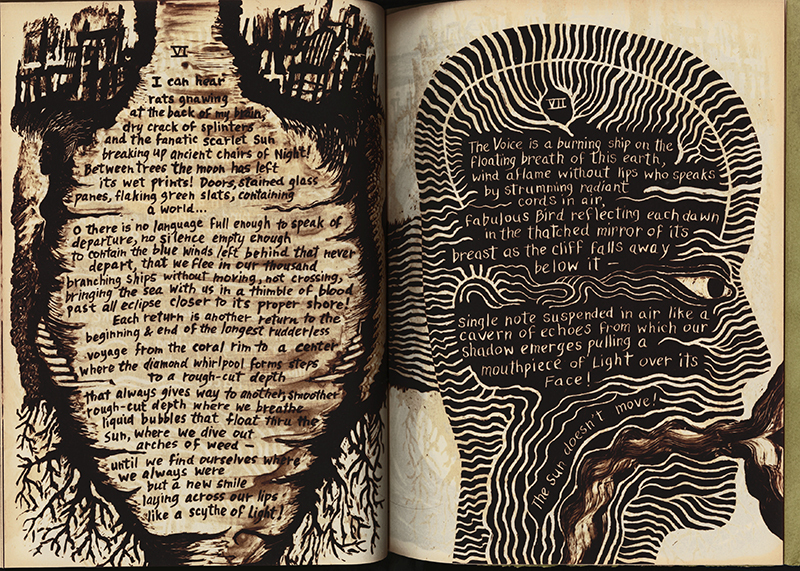 VI
I can hear
rats gnawing
at the back of my brain,
dry crack of splinters
and the fanatic scarlet Sun
breaking up ancient chairs of Night!
Between trees the moon has left
its wet prints! Doors, stained glass
panes, flaking green slats, containing
a world...
O there is no language full enough to speak of
departure, no silence empty enough
to contain the blue winds left behind that never
depart, that we flee in our thousand
branching ships without moving, not crossing,
bringing the sea with us in a thimble of blood
past all eclipse closer to its proper shore!
Each return is another return to the
beginning & end of the longest rudderless
voyage from the coral rim to a center
where the diamond whirlpool forms steps
to a rough-cut depth
that always gives way to another, smoother
rough-cut depth where we breathe
liquid bubbles that float thru the
Sun, where we dive out
arches of weed
until we find ourselves where
we always were
but a new smile
laying across our lips
like a scythe of Light!
VII
The Voice is a burning ship on the
floating breath of this earth,
wind aflame without lips who speaks
by strumming radiant
cords in air,
fabulous Bird reflecting each dawn
in the thatched mirror of it's
breast as the cliff falls away
below it —
Single note suspended in air like a
cavern of echoes from which our
shadow emerges pulling a
mouthpiece of Light over its
Face!
The Sun doesn't move!